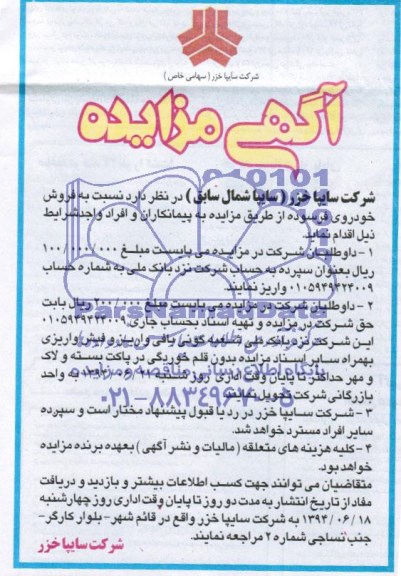 شرکت سایپا خزر (سهامی خاص)
آگهی مزایده
شرکت سایپا خزر (سایپا شمال سابق) در نظر دارد نسبت به فروش
خودروی فرسوده از طریق مزایده به پیمانکاران و افراد واجد شرایط
ذیل اقدام نماید.
۱- داوطلبان شرکت در مزایده می بایست مبلغ ۱۰۰/۰۰۰/۰۰۰
ریال بعنوان سپرده به حساب شرکت نزد بانک ملی به شماره حساب
۰۱۰۵۹۳۹۳۲۳۰۰۹ واریز نمایند.
۲- داوطلبان شرکت در مزایده می بایست مبلغ ۲۰۰/۰۰۰ ریال بابت
حق شرکت در مزایده و تهیه اسناد بحساب جاری ۰۱۰۵۹۳۹۳۲۳۰۰۹
این شرکت نزد بانک ملی شعبه گونی بافی واریز و فیش واریزی
بهمراه سایر اسناد مزایده بدون قلم خوردگی در پاکت بسته و لاک
و مهر حداکثر تا پایان وقت اداری روز شنبه به واحد
بازرگانی شرکت تحویل نمایند.
۳- شرکت سایپا خزر در رد یا قبول پیشنهاد مختار است و سپرده
سایر افراد مسترد خواهد شد.
۴- کلیه هزینه های متعلقه (مالیات و نشر آگهی) بعهده برنده مزایده
خواهد بود.
متقاضیان می توانند جهت کسب اطلاعات بیشتر و بازدید و دریافت
مفاد از تاریخ انتشار به مدت دو روز تا پایان وقت اداری روز چهارشنبه
۱۳۹۴/۰۶/۱۸ به شرکت سایپا خزر واقع در قائم شهر- بلوار کارگر-
جنب نساجی شماره ۲ مراجعه نمایند.
شرکت سایپا خزر
ParsNamadData
پایگاه اطلاع رسانی مناقصه و مزایده
۰۲۱-۸۸۳۴۹۶۷۰-۵